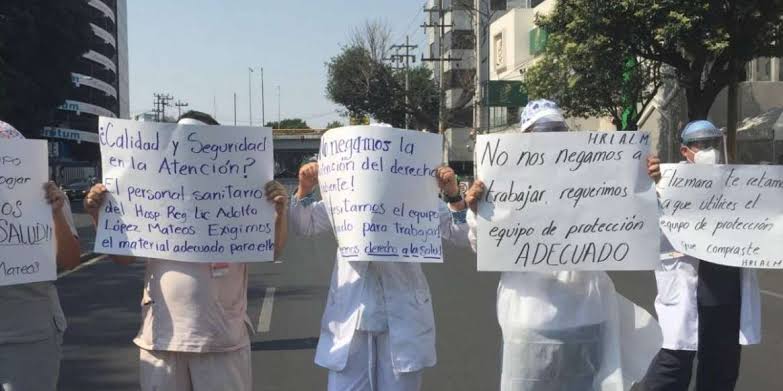 bajar
OS
SALUD!!
Mateos
¿Calidad y Seguridad
en la Atención?
El personal sanitario
del Hosp Reg Lic Adolfo
López Mateos Exigimos
el material adecuado para ello
No negamos la
atención del derecho
el equipo
para trabajar
derecho a la salud!
HRLALM
No nos negamos a
trabajar, requerimos
equipo de protección
ADECUADO
Elizmara te reta
a que utilices el
equipo de protección
que compraste
HRLALM